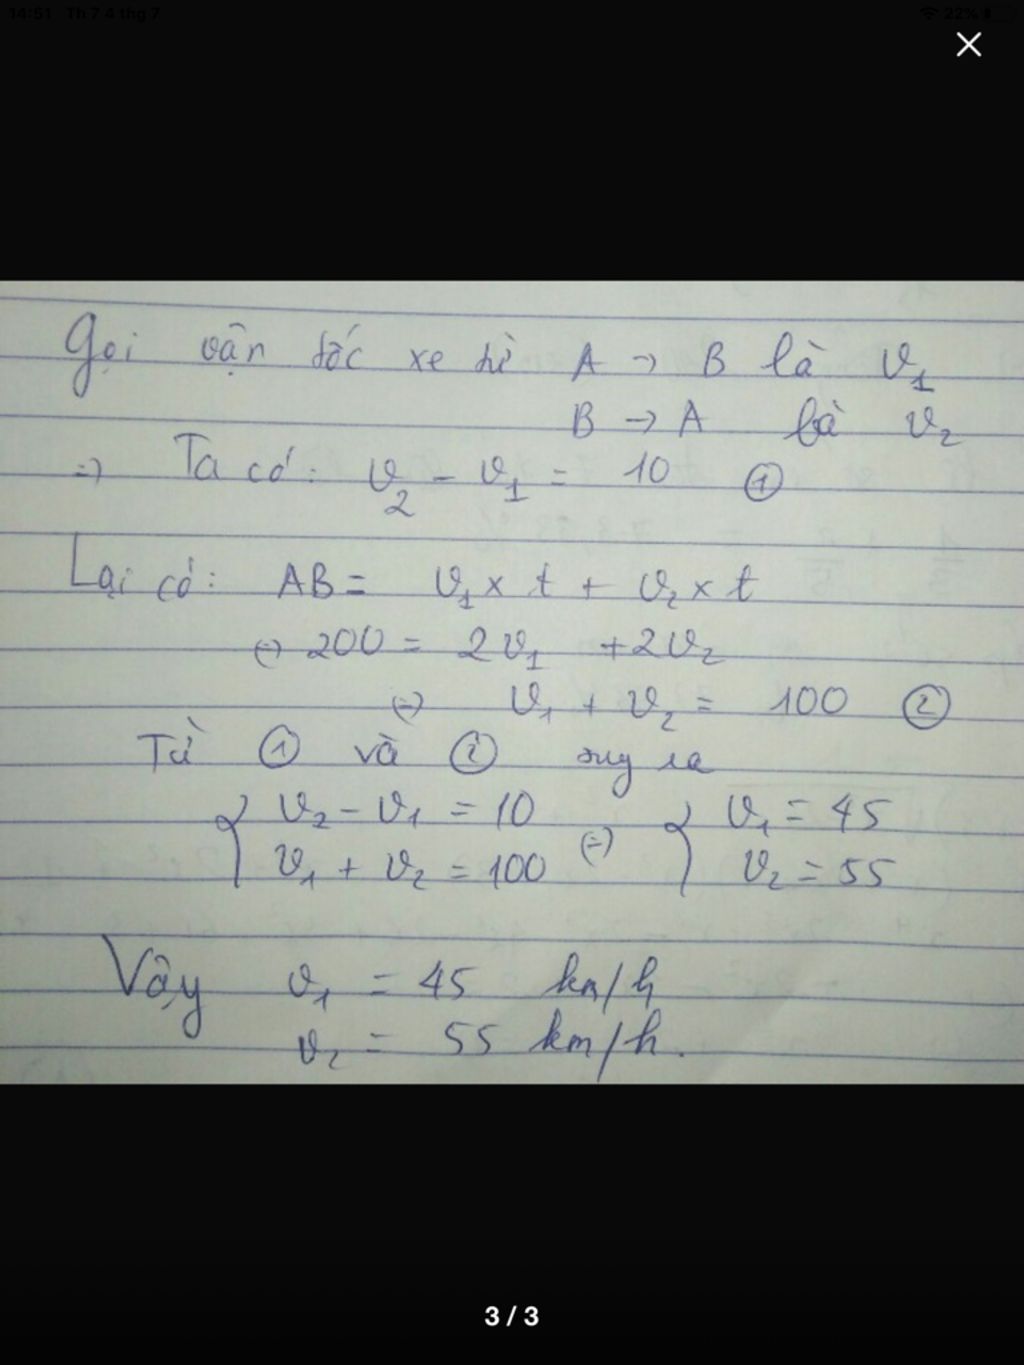 14:51 Th 7 4 thg 7
22%
Gọi vận tốc xe từ A → B là v₁
B → A là v₂
=) Ta có: v₂ - v₁ = 10 ①
Lại có: AB = v₁ x t + v₂ x t
(=) 200 = 2v₁ + 2v₂
(=) v₁ + v₂ = 100 ②
Từ ① và ② suy ra
{ v₂ - v₁ = 10 (=) { v₁ = 45
v₁ + v₂ = 100 v₂ = 55
Vậy v₁ = 45 km/h
v₂ = 55 km/h.
3 / 3